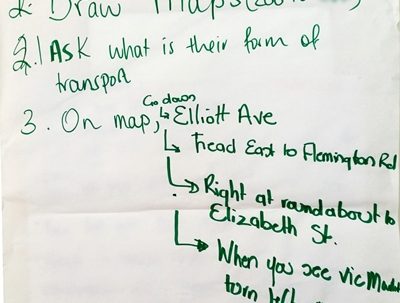 2. Draw Maps
2.1 Ask what is their form of
transport
Go down
3. On map, Elliott Ave
Head East to Flemington Rd
Right at roundabout to
Elizabeth St.
When you see Vic Market
turn